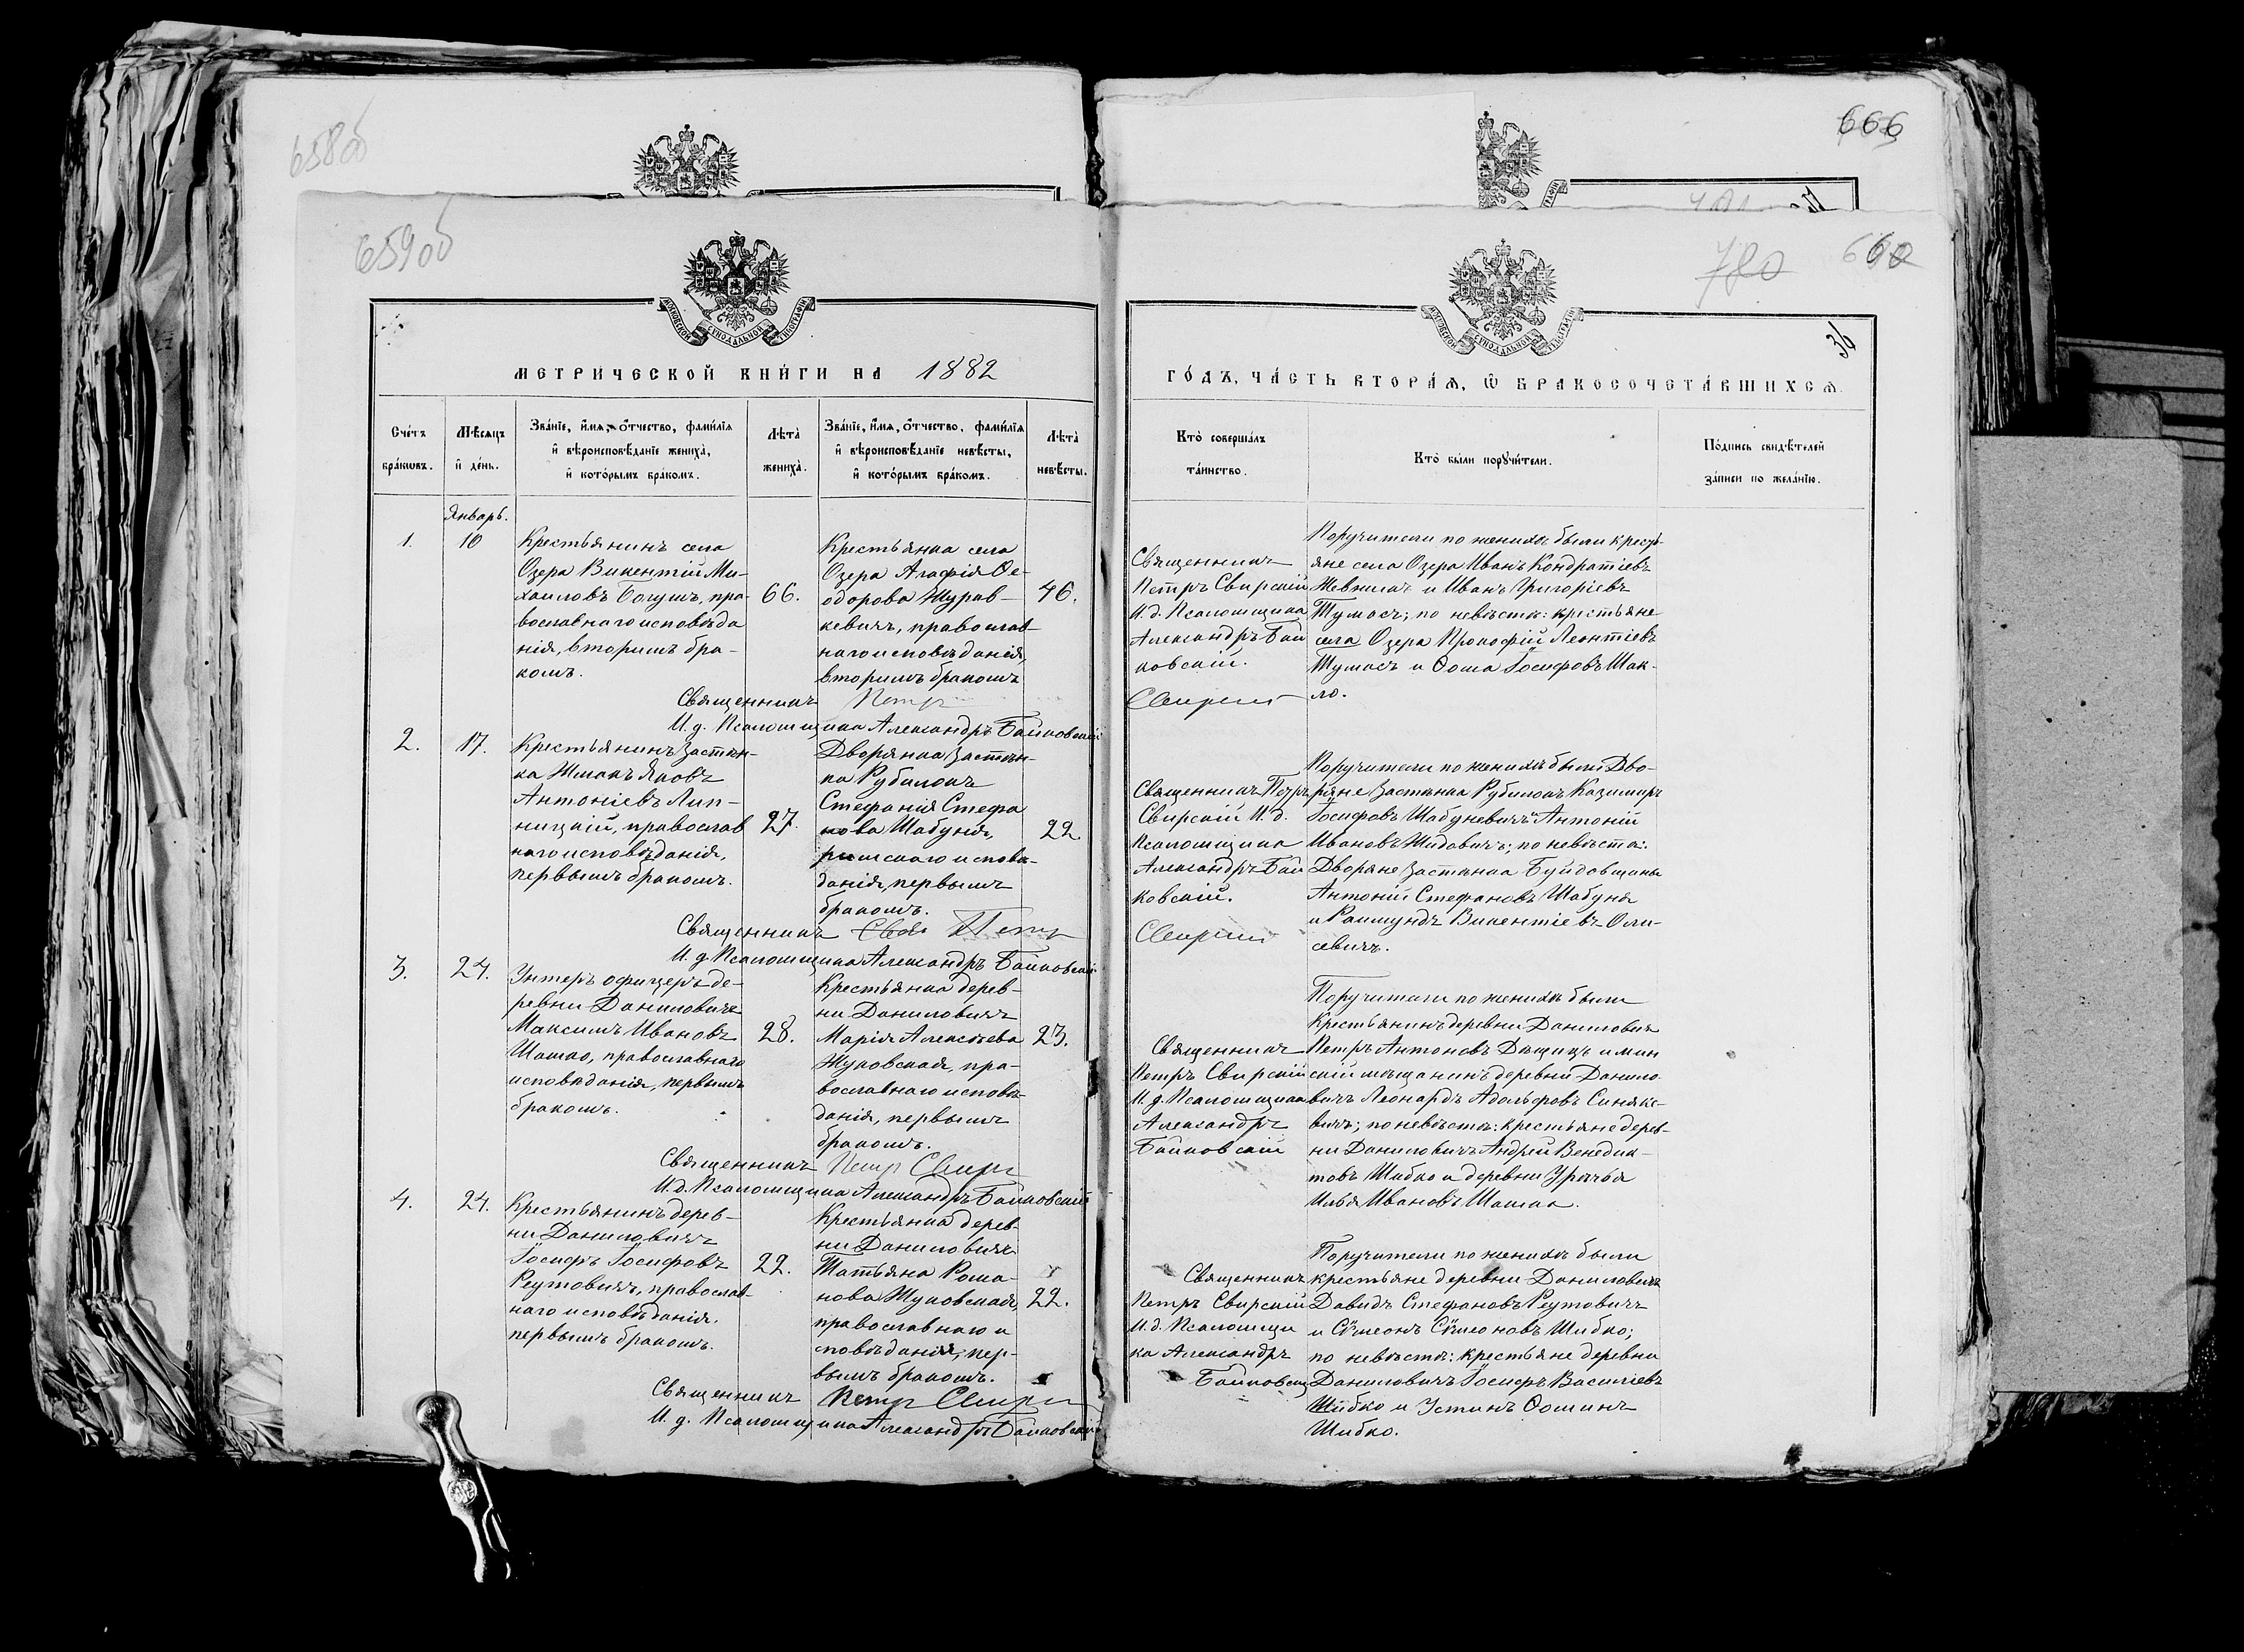 658об
666
659об
780 660
МОСКОВСКОЙ СѴНОДАЛЬНОЙ ТИПОГРАФІИ
МОСКОВСКОЙ СѴНОДАЛЬНОЙ ТИПОГРАФІИ
36
МЕТРИЧЕСКОЙ КНИ́ГИ НА 1882
ГО́ДЪ, ЧА́СТЬ ВТОРА́Ѧ, Ѡ҆ БРАКОСОЧЕТА́ВШИХСѦ.
Сче́тъ бра́кѡвъ.
Мѣ́сяцъ и҆ де́нь.
Зва́нїе, и҆́мѧ, ѻ҆́тчество, фами́лїѧ и҆ вѣроисповѣ́данїе жениха̀, и҆ кото́рымъ бра́комъ.
Лѣта̀ жениха̀.
Зва́нїе, и҆́мѧ, ѻ҆́тчество, фами́лїѧ и҆ вѣроисповѣ́данїе невѣ́сты, и҆ кото́рымъ бра́комъ.
Лѣта̀ невѣ́сты.
Кто̀ соверша́лъ та́инство.
Кто̀ бы́ли порꙋчи́тели.
По́дпись свидѣ́телей за́писи по жела́нїю.
Январь.
1.
10
Крестьянинъ села
Озера Викентій Ми-
хаиловъ Богушъ, пра-
вославнаго исповѣда
нія, вторимъ бра-
комъ.
66.
Крестьянка села
Озера Агафія Ѳе-
одорова Журав-
кевичъ, православ-
наго исповѣданія,
вторимъ бракомъ
46.
Священникъ
Петръ Свирскій
И.д. Псаломщика
Александръ Бай
ковскій.
Поручители по женихѣ были кресть-
яне села Озера Иванъ Кондратіевъ
Жевнякъ и Иванъ Григоріевъ
Тумасъ; по невѣстѣ: крестьяне
села Озера Прокофій Леонтіевъ
Тумасъ и Ѳома Іосифовъ Шак-
ло.
Священникъ Петр
Свирскій
И.д. Псаломщика Александръ Байковскій
2.
17.
Крестьянинъ застѣн-
ка Жмакъ Яковъ
Антоніевъ Лип-
ницкій, православ
наго исповѣданія,
первымъ бракомъ.
27.
Дворянка застѣн-
ка Рубилокъ
Стефанія Стефа
нова Шабуня,
римскаго исповѣ-
данія, первымъ
бракомъ.
22
Священникъ Петръ
Свирскій И.д.
Псаломщика
Александръ Бай
ковскій.
Поручители по женихѣ были Дво-
ряне застѣнка Рубилокъ Казимиръ
Іосифовъ Шабуневичъ и Антоній
Ивановъ Жидовичъ; по невѣстѣ:
Дворяне застѣнка Буйдовщины
Антоній Стефановъ Шабуня
и Раймундъ Викентіевъ Оли-
севичъ.
Священникъ Свя Петр
Свирскій
И.д. Псаломщика Александръ Байковскій
3.
24.
Унтеръ офицеръ де-
ревни Даниловичъ
Максимъ Ивановъ
Шашко, православнаго
исповѣданія, первымъ
бракомъ.
28.
Крестьянка дерев-
ни Даниловичъ
Марія Алексѣева
Жуковская, пра-
вославнаго исповѣ-
данія, первымъ
бракомъ.
23.
Священникъ
Петръ Свирскій
И.д. Псаломщика
Александръ
Байковскій
Поручители по женихѣ были
Крестьянинъ деревни Даниловичъ
Петръ Антоновъ Дѣщицъ и мин
скій мѣщанинъ деревни Данило-
вичъ Леонардъ Адольфовъ Синяке-
вичъ; по невѣстѣ: крестьяне дерев-
ни Даниловичъ Андрей Венедик-
товъ Шибко и деревни Уречья
Илья Ивановъ Шашка.
Священникъ Петр Свирс
И.д. Псаломщика Александръ Байковскій
4.
24.
Крестьянинъ дерев-
ни Даниловичъ
Іосифъ Іосифовъ
Реутовичъ, православ-
наго исповѣданія,
первымъ бракомъ.
22.
Крестьянка дерев-
ни Даниловичъ
Татьяна Рома-
нова Жуковская,
православнаго и
сповѣданія, пер-
вымъ бракомъ.
22.
Священникъ
Петръ Свирскій
И.д. Псаломщи
ка Александръ
Байковскі
Поручители по женихѣ были
крестьяне деревни Даниловичъ
Давидъ Стефановъ Реутовичъ
и Сѵмеонъ Сѵмеоновъ Шибко;
по невѣстѣ: крестьяне деревни
Даниловичъ Іосифъ Василіевъ
Шибко и Устинъ Ѳоминъ
Шибко.
Священникъ Петр Свирс
И.д. Псаломщика Александръ Байковскій